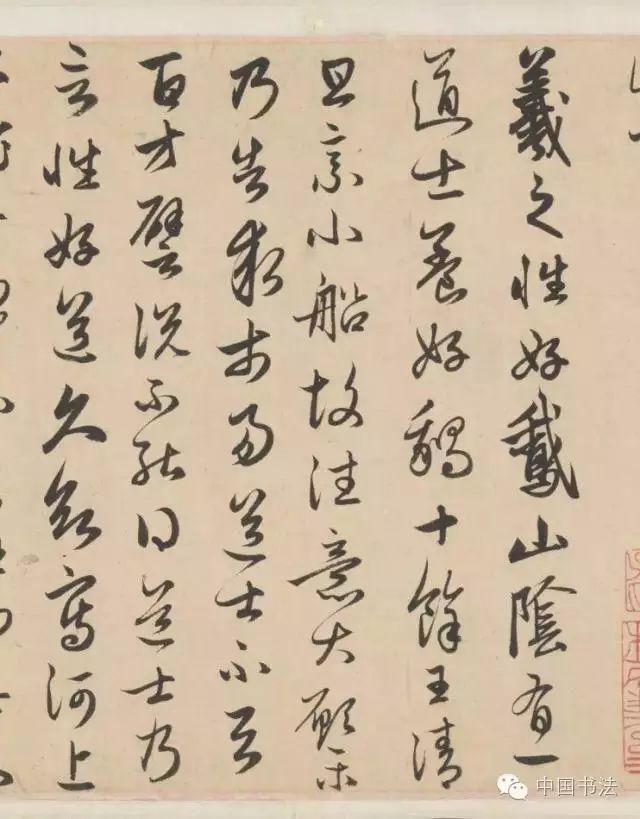 羲之性好鵞山陰有一
道士養好鵝十餘王清
旦乘小船故往意大願樂
乃告求市易道士不与
百方譬説不能得道士乃
言性好道久欲寫河上
中国书法